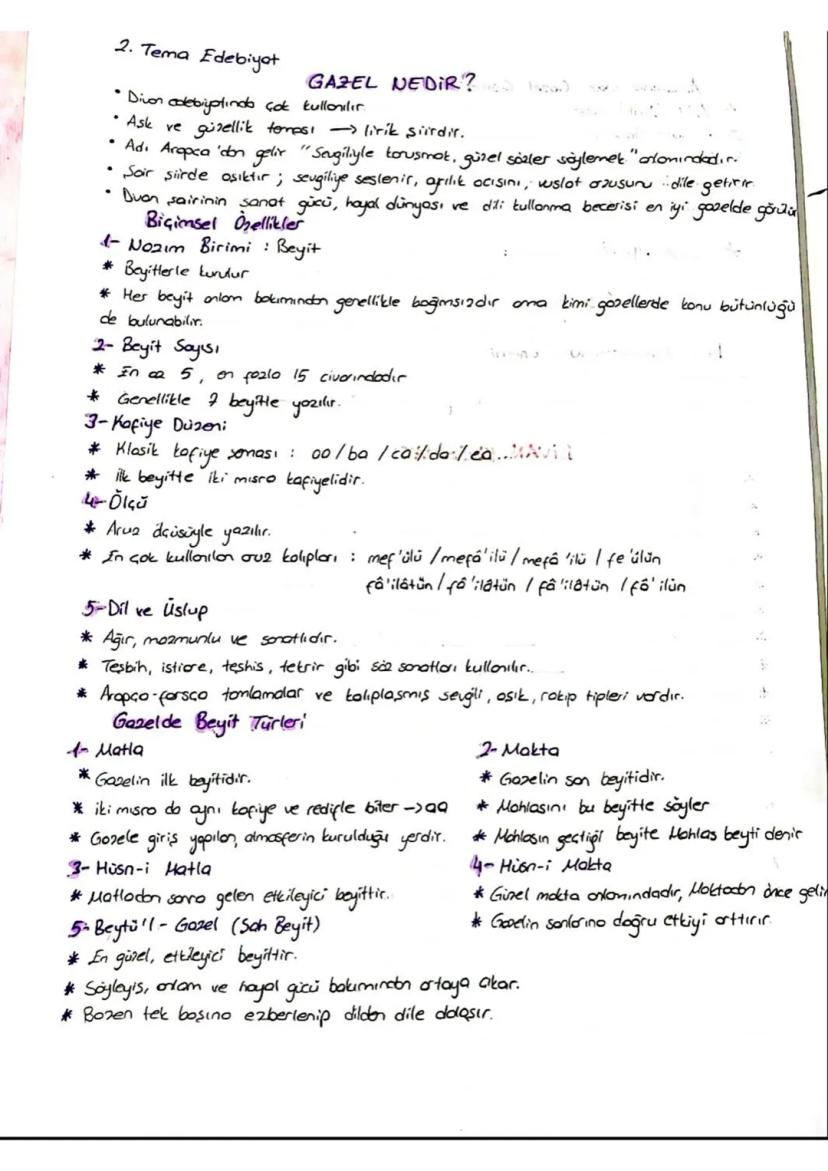 2. Tema Edebiyat
GAZEL NEDİR?
• Divan edebiyatında çok kullanılır.
• Aşk ve güzellik teması → lirik şiirdir.
• Adı Arapça'dan gelir "Sevgiliyle konuşmak, güzel sözler söylemek" anlamındadır.
• Şair şiirde aşıktır ; sevgiliye seslenir, ayrılık acısını, vuslat arzusunu dile getirir
• Divan şairinin sanat gücü, hayal dünyası ve dili kullanma becerisi en iyi gazelde görülür
Biçimsel Özellikler
1- Nazım Birimi : Beyit
* Beyitlerle kurulur
* Her beyit anlam bakımından genellikle bağımsızdır ama kimi gazellerde konu bütünlüğü
de bulunabilir.
2- Beyit Sayısı
* En az 5, en fazla 15 civarındadır
* Genellikle 7 beyitle yazılır.
3- Kafiye Düzeni
* Klasik kafiye şeması : aa / ba / ca / da / ea...
* İlk beyitte iki mısra kafiyelidir.
4- Ölçü
* Aruz ölçüsüyle yazılır.
* En çok kullanılan aruz kalıpları : mef'ûlü / mefâ'ilü / mefâ'ilü / fe'ûlün
fâ'ilâtün / fâ'ilâtün / fâ'ilâtün / fâ'ilün
5- Dil ve Üslup
* Ağır, mazmunlu ve sanatlıdır.
* Teşbih, istiare, teşhis, tekrir gibi söz sanatları kullanılır.
* Arapça-farsça tamlamalar ve kalıplaşmış sevgili, aşık, rakip tipleri vardır.
Gazelde Beyit Türleri
1- Matla
* Gazelin ilk beyitidir.
* iki mısra da aynı kafiye ve redifle biter → aa
* Gazele giriş yapılan, atmosferin kurulduğu yerdir.
2- Makta
* Gazelin son beyitidir.
* Mahlasını bu beyitte söyler
* Mahlasın geçtiği beyite Mahlas beyti denir
3- Hüsn-i Matla
* Matladan sonra gelen etkileyici beyittir.
4- Hüsn-i Makta
* Güzel makta anlamındadır, Maktadan önce gelir
* Gazelin sonlarına doğru etkiyi arttırır
5- Beytü'l-Gazel (Şah Beyit)
* En güzel, etkileyici beyittir.
* Söyleyiş, anlam ve hayal gücü bakımından ortaya çıkar.
* Bazen tek başına ezberlenip dilden dile dolaşır.